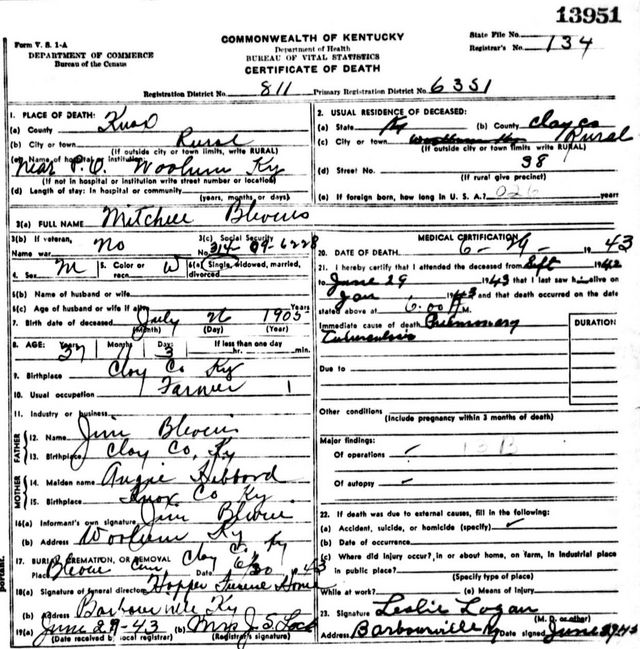 13951
Form V. S. 1-A
DEPARTMENT OF COMMERCE
Bureau of the Census
COMMONWEALTH OF KENTUCKY
Department of Health
BUREAU OF VITAL STATISTICS
CERTIFICATE OF DEATH
State File No.
Registrar's No. 134
Registration District No. 811 Primary Registration District No. 6351
1. PLACE OF DEATH:
(a) County Knox
(b) City or town Rural
(If outside city or town limits, write RURAL)
(c) Name of hospital or institution: Near P.O. Woolum Ky
(If not in hospital or institution write street number or location)
(d) Length of stay: In hospital or community
(years, months or days)
2. USUAL RESIDENCE OF DECEASED:
(a) State Ky (b) County Clay co
(c) City or town Rural
(If outside city or town limits write RURAL)
(d) Street No. 38
(If rural give precinct)
(e) If foreign born, how long in U. S. A.? 026 years
3(a) FULL NAME Mitchell Blevins
3(b) If veteran, Name war No
3(c) Social Security No. 314 09-6228
4. Sex M 5. Color or race W 6(a) Single, widowed, married, divorced
6(b) Name of husband or wife
6(c) Age of husband or wife if alive Years
7. Birth date of deceased July 26 1905
(Month) (Day) (Year)
8. AGE: Years 37 Months 11 Days 3 If less than one day hr. min.
9. Birthplace Clay Co Ky
10. Usual occupation Farmer 1
11. Industry or business
FATHER
12. Name Jim Blevins
13. Birthplace Clay Co, Ky
MOTHER
14. Maiden name Angie Hibbard
15. Birthplace Knox Co Ky
16(a) Informant's own signature Jim Blevins
(b) Address Woolum Ky
17. BURIAL, CREMATION, OR REMOVAL Clay Co Ky
Place Date 6/30 1943
18(a) Signature of funeral director Hopper Funeral Home
(b) Address Barbourville Ky
19(a) June 29-43 (b) Mrs J S Lock
(Date received by local registrar) (Registrar's signature)
MEDICAL CERTIFICATION
20. DATE OF DEATH 6- 29 - 1943
21. I hereby certify that I attended the deceased from Sept 1942
to June 29 1943 that I last saw him alive on
Jan 1943 and that death occurred on the date
stated above at 6:00 A M.
Immediate cause of death Pulmonary
Tuberculosis
DURATION
Due to
Other conditions
(Include pregnancy within 3 months of death)
Major findings:
Of operations
Of autopsy
22. If death was due to external causes, fill in the following:
(a) Accident, suicide, or homicide (specify)
(b) Date of occurrence
(c) Where did injury occur?, in or about home, on farm, in industrial place
in public place?
(Specify type of place)
While at work? (e) Means of Injury
23. Signature Leslie Logan
(M. D. or other)
Address Barbourville Ky Date signed June 29 43